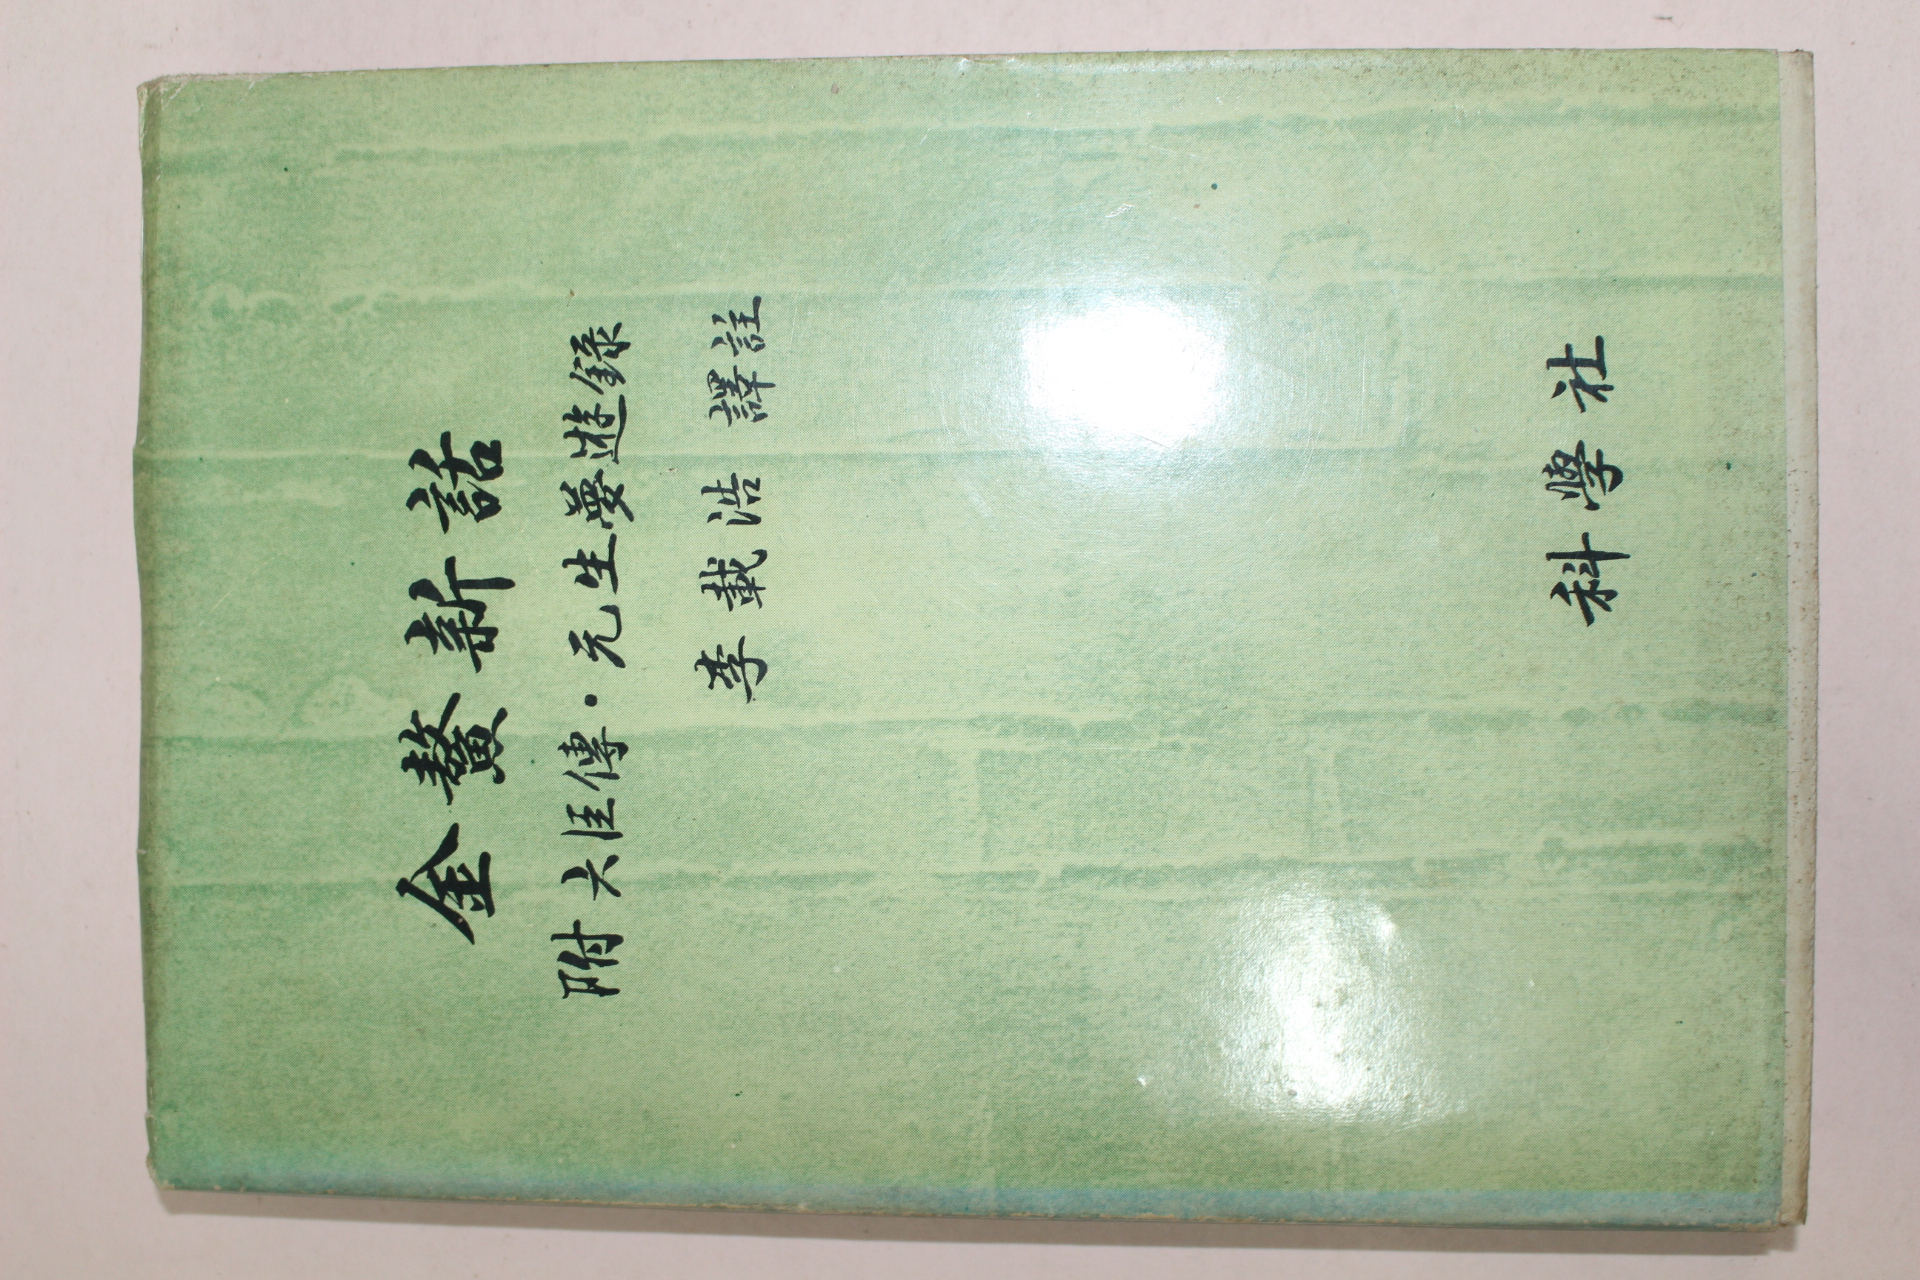 金鰲新話
附六臣傳·元生夢遊錄
李載浩 譯註
科學社